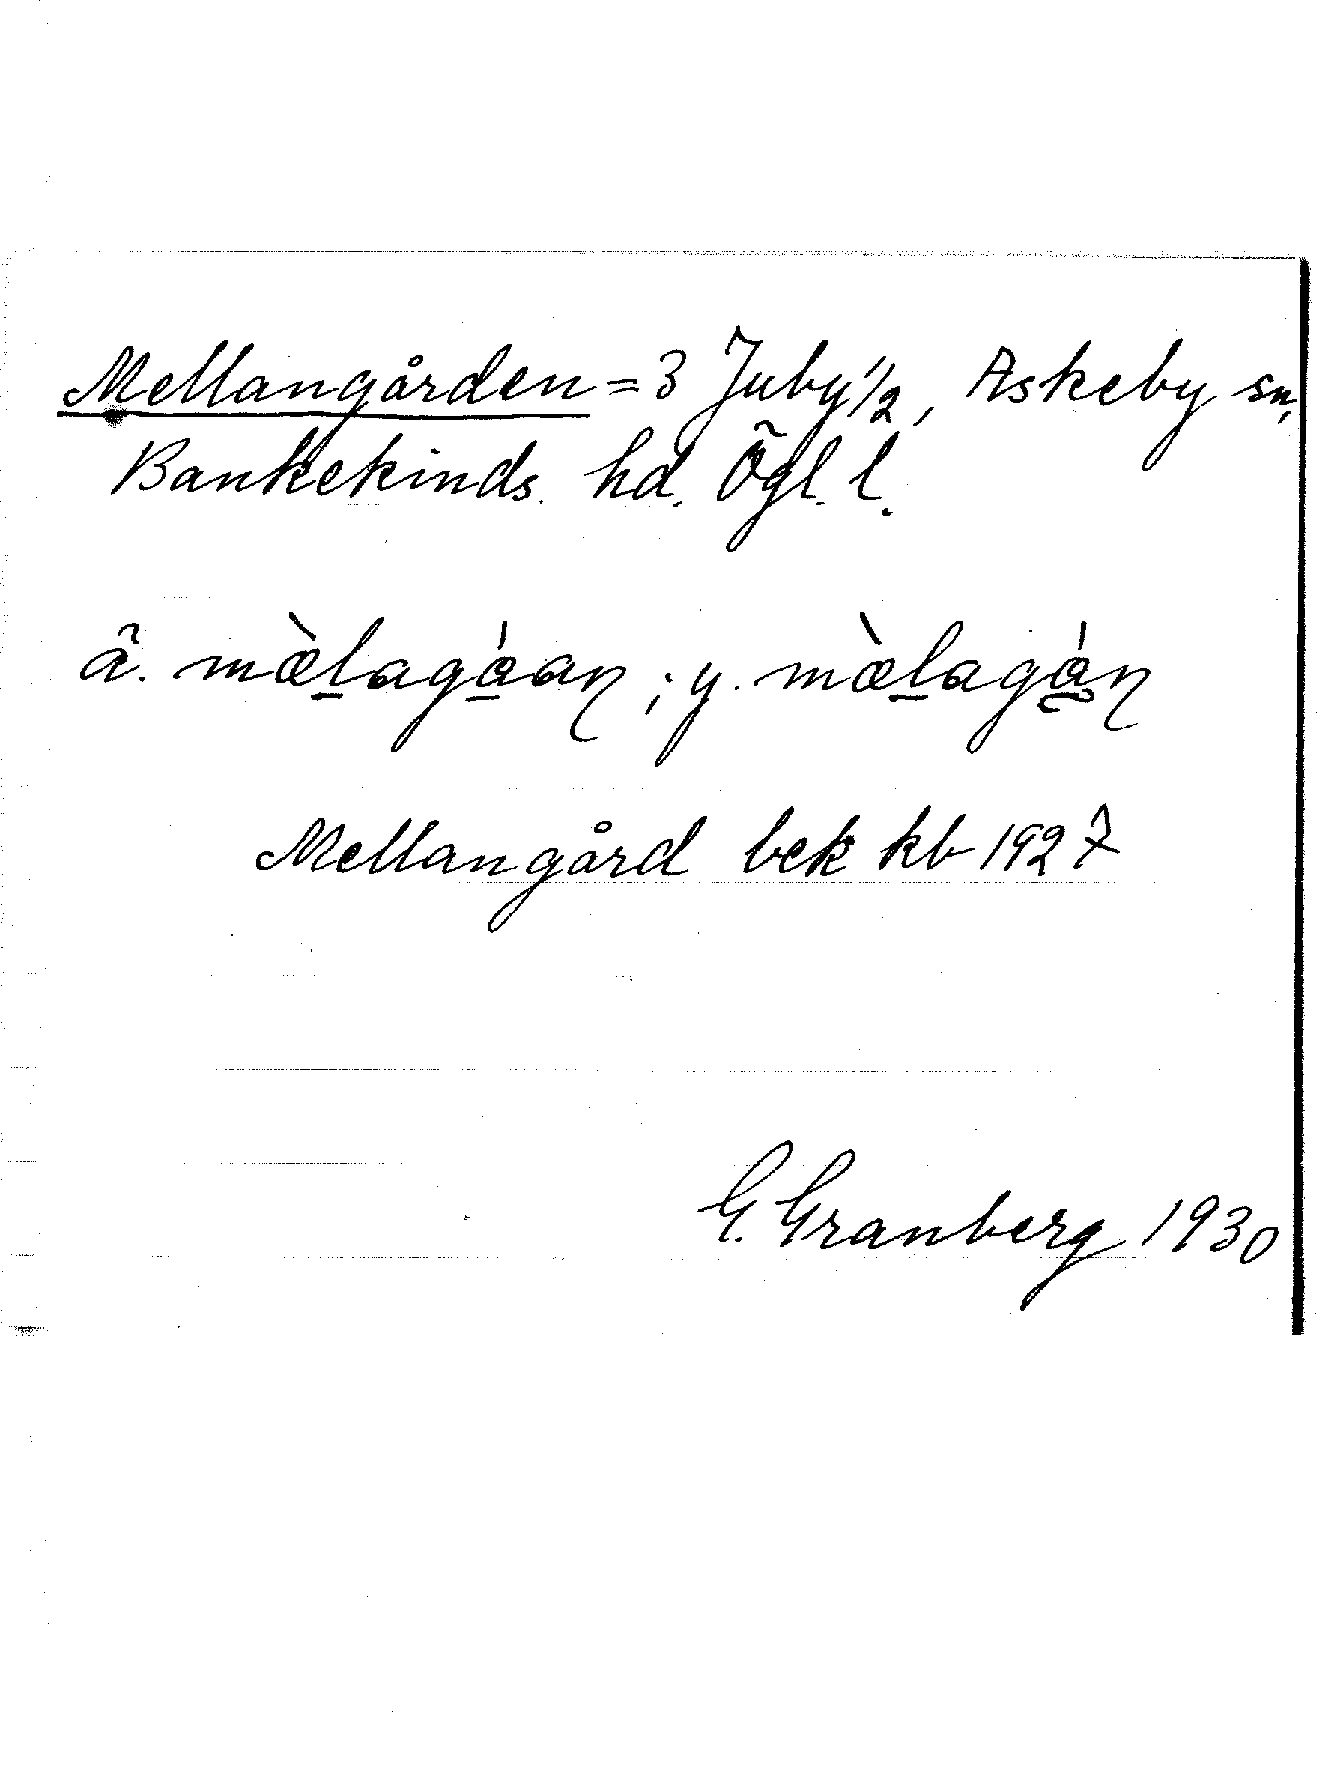 Mellangården = 3 Juby 1/2, Askeby sn,
Bankekinds hd. Ögl. l.
ä. mæ̀l̠agá̠aaɳ ; y. mæ̀l̠agá̠ɳ
Mellangård bek kb 1927
G. Granberg 1930